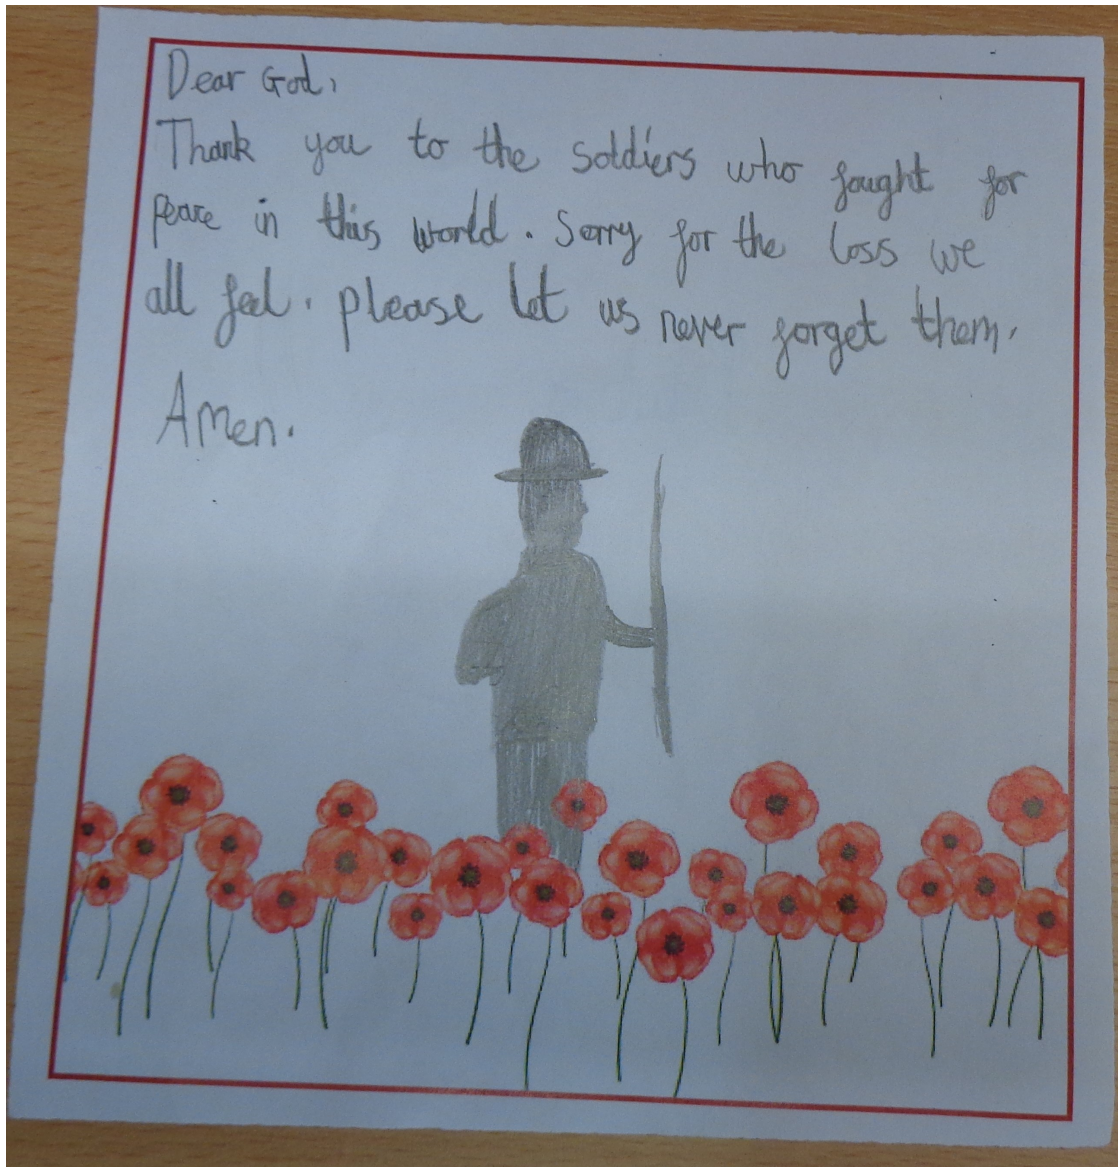 Dear God,
Thank you to the soldiers who fought for
peace in this world. Sorry for the loss we
all feel. please let us never forget them.
Amen.